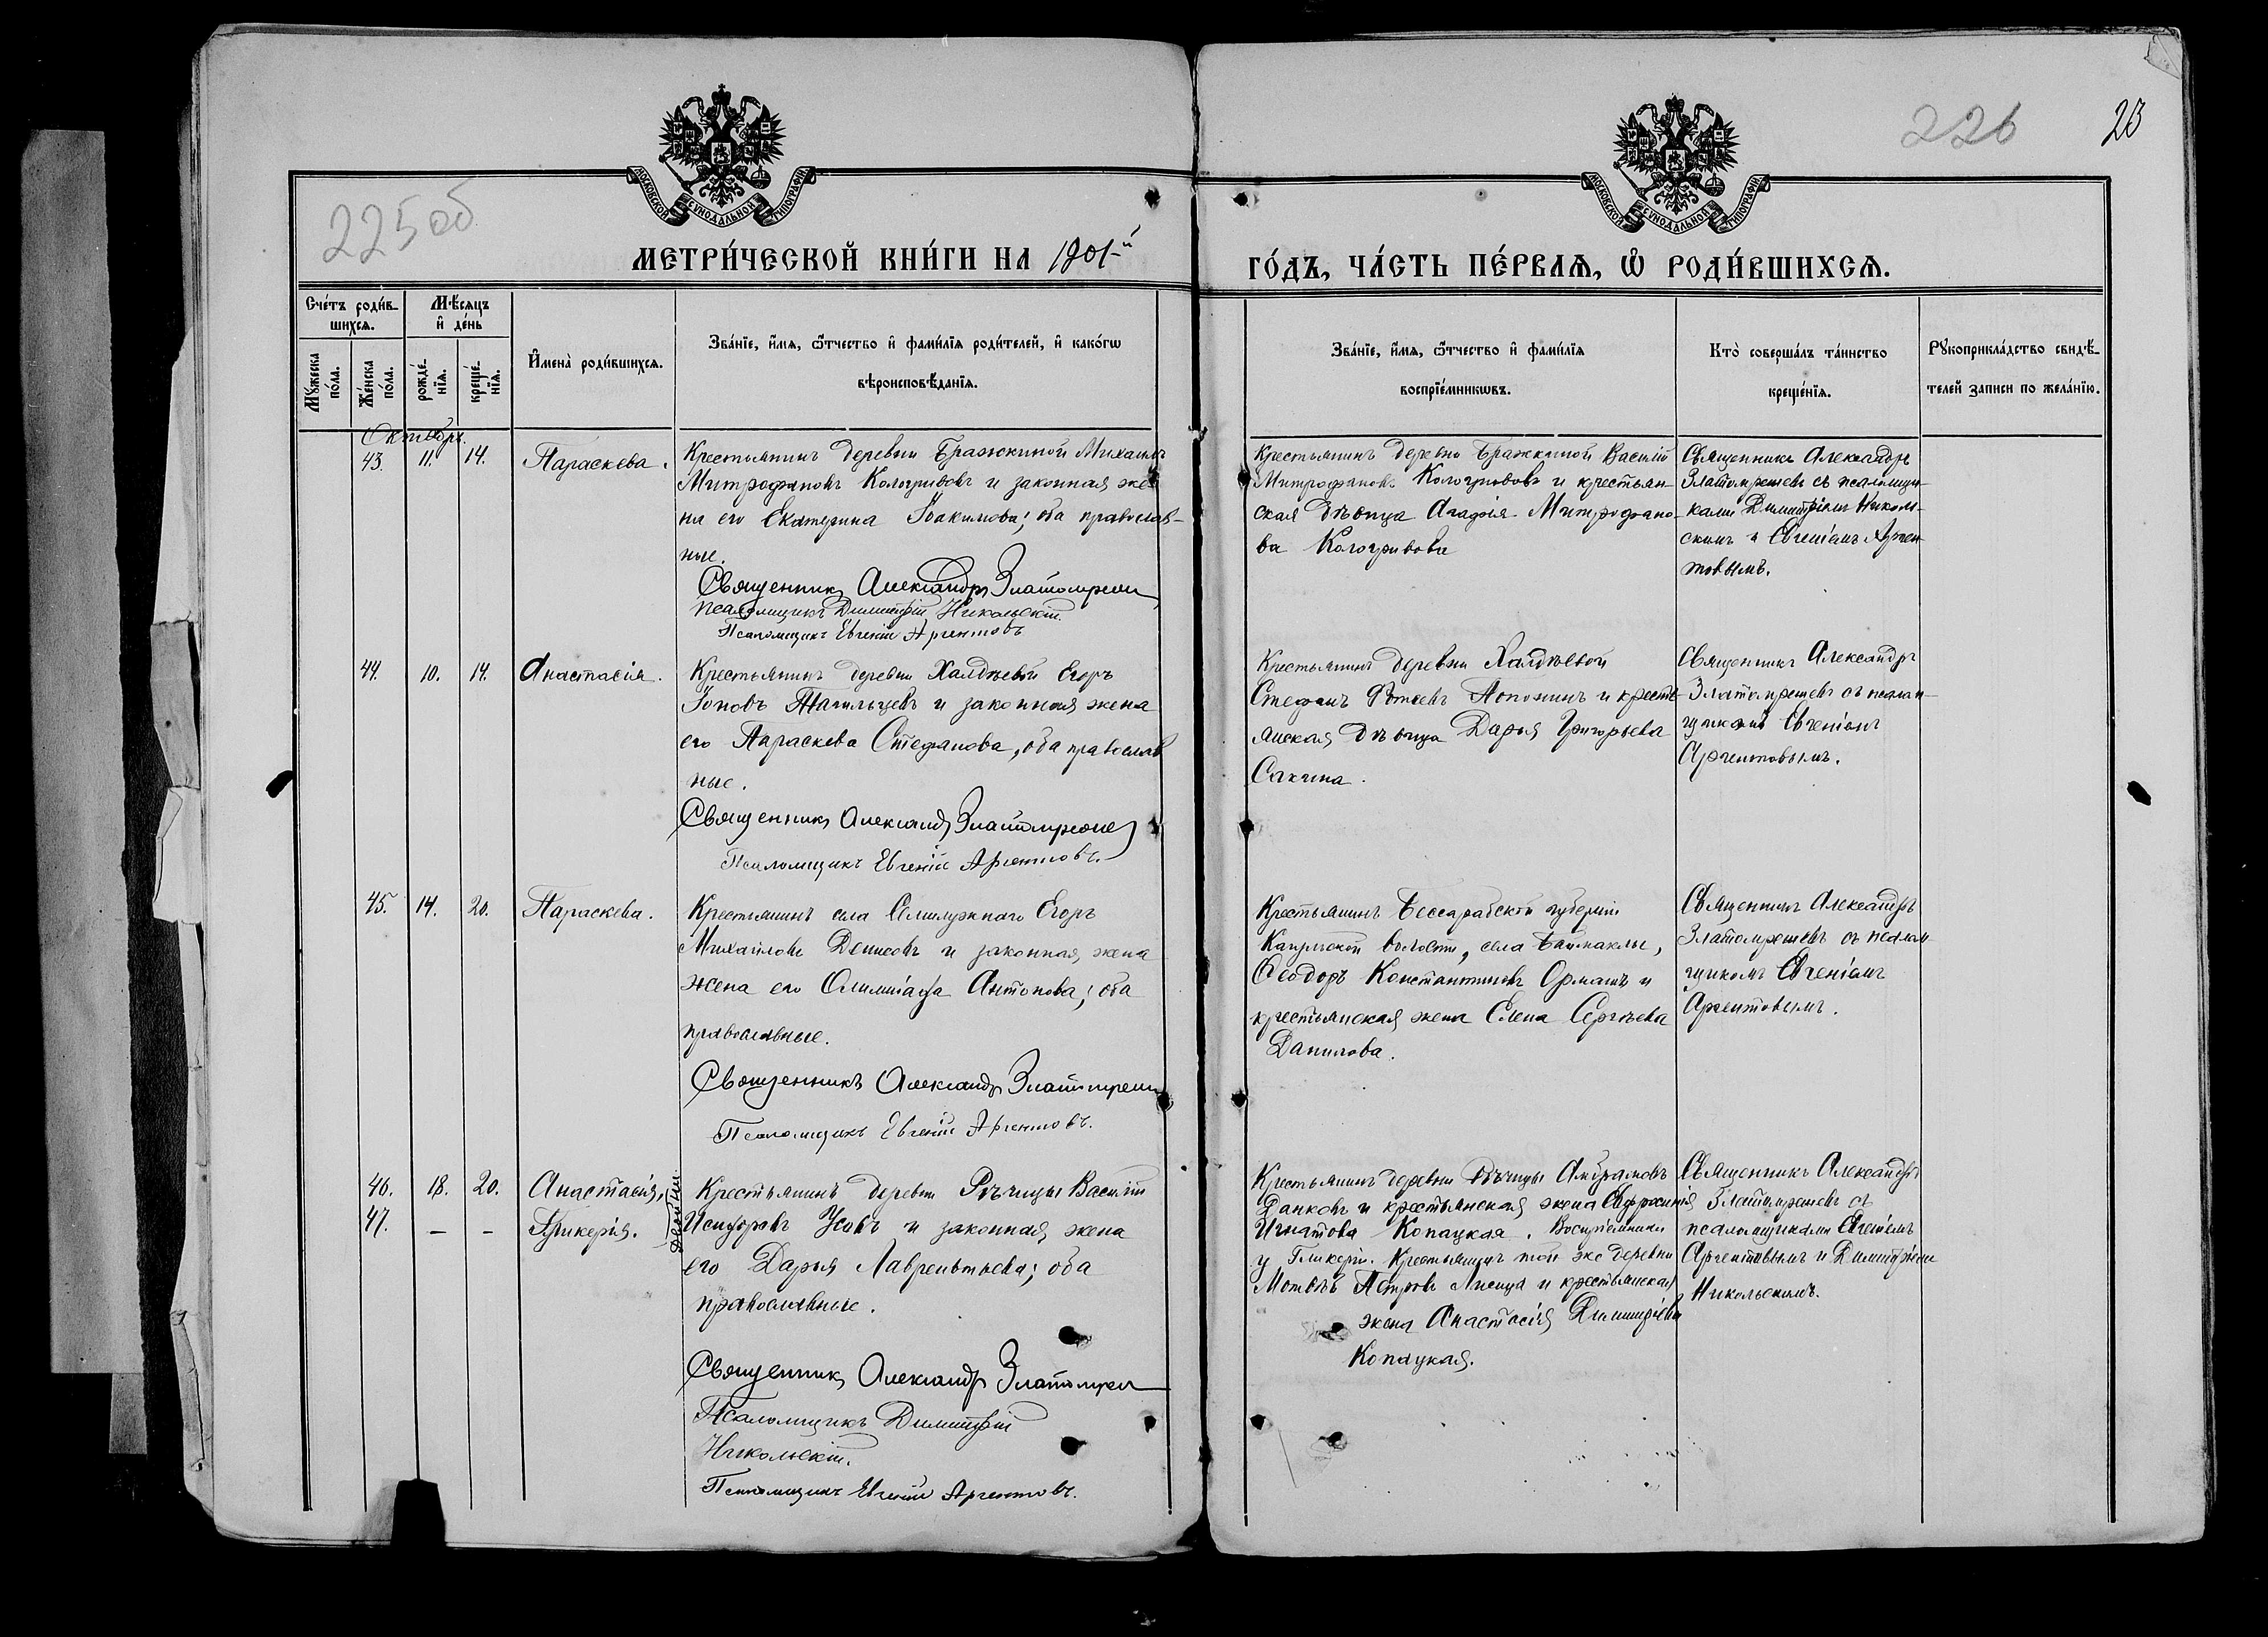 226
23
225 об
МОСКОВСКОЙ СѴНОДАЛЬНОЙ ТИПОГРАФІИ
МОСКОВСКОЙ СѴНОДАЛЬНОЙ ТИПОГРАФІИ
МЕТРИ́ЧЕСКОЙ КНИ́ГИ НА 1901й
ГО́ДЪ, ЧА́СТЬ ПЕ́РВАѦ, Ѡ҆ РОДИ́ВШИХСѦ.
Сче́тъ роди́в-
шихсѧ.
Мѣ́сѧцъ
и҆ де́нь
Мꙋ́жеска
по́ла.
Же́нска
по́ла.
рожде́-
нїѧ.
креще́-
нїѧ.
И҆мена̀ роди́вшихсѧ.
Зва́нїе, и҆́мѧ, ѻ҆́тчество и҆ фами́лїѧ роди́телей, и҆ како́гѡ
вѣроисповѣ́данїѧ.
Зва́нїе, и҆́мѧ, ѻ҆́тчество и҆ фами́лїѧ
воспрїе́мникѡвъ.
Кто̀ соверша́лъ та́инство
креще́нїѧ.
Рꙋкоприкла́дство свидѣ́-
телей записи по жела́нїю.
Октябрь.
43. 11. 14. Параскева.
Крестьянинъ деревни Бражкиной Михаилъ
Митрофановъ Кологривовъ и законная же-
на его Екатерина Іоакимова; оба православ-
ные.
Священникъ Александръ Златомрежев
Псаломщикъ Димитрій Никольскій.
Псаломщикъ Евгеній Аргентовъ
Крестьянинъ деревни Бражкиной Василій
Митрофановъ Кологривовъ и крестьян-
ская дѣвица Агафія Митрофано-
ва Кологривова
Священникъ Александръ
Златомрежевъ съ псаломщи-
ками Димитріемъ Николь-
скимъ и Евгеніемъ Арген-
товымъ.
44. 10. 14. Анастасія.
Крестьянинъ деревни Халдѣевой Егоръ
Іоновъ и законная жена
его Параскева Стефанова, оба православ
ные.
Священникъ Александръ Златомрежев
Псаломщикъ Евгеній Аргентовъ.
Крестьянинъ деревни Халдѣевой
Стефанъ и кресть-
янская дѣвица Дарья Григорьева
Сакина.
Священникъ Александръ
Златомрежевъ съ псалом-
щикомъ Евгеніемъ
Аргентовымъ.
45. 14. 20. Параскева.
Крестьянинъ села Семилужнаго Егоръ
Михайловъ Денисовъ и законная жена
жена его Антонова; оба
православные.
Священникъ Александръ Златомрежев
Псаломщикъ Евгеній Аргентовъ.
Крестьянинъ Бессарабской губерніи
Кагульской волости, села Баймаклы,
Ѳеодоръ Константиновъ Орманъ и
крестьянская жена Елена Сергѣева
Данилова.
Священникъ Александръ
Златомрежевъ съ псалом-
щикомъ Евгеніемъ
Аргентовымъ.
46. 18. 20. Анастасія,
47. – – Гликерія.
Крестьянинъ деревни Рѣчицы Василій
Исидоровъ Усовъ и законная жена
его Дарья Лаврентьева; оба
православные.
Священникъ Александръ Златомрежев
Псаломщикъ Димитрій
Никольскій.
Псаломщикъ Евгеній Аргентовъ.
Крестьянинъ деревни Рѣчицы
и крестьянская жена Евфросинія
Игнатова Копацкая. Воспріемники
у Гликеріи. Крестьянинъ той же деревни
Петровъ Лисица и крестьянская
жена Анастасія Димитріева
Копацкая.
Священникъ Александръ
Златомрежевъ съ
псаломщиками Евгеніемъ
Аргентовымъ и Димитріемъ
Никольскимъ.